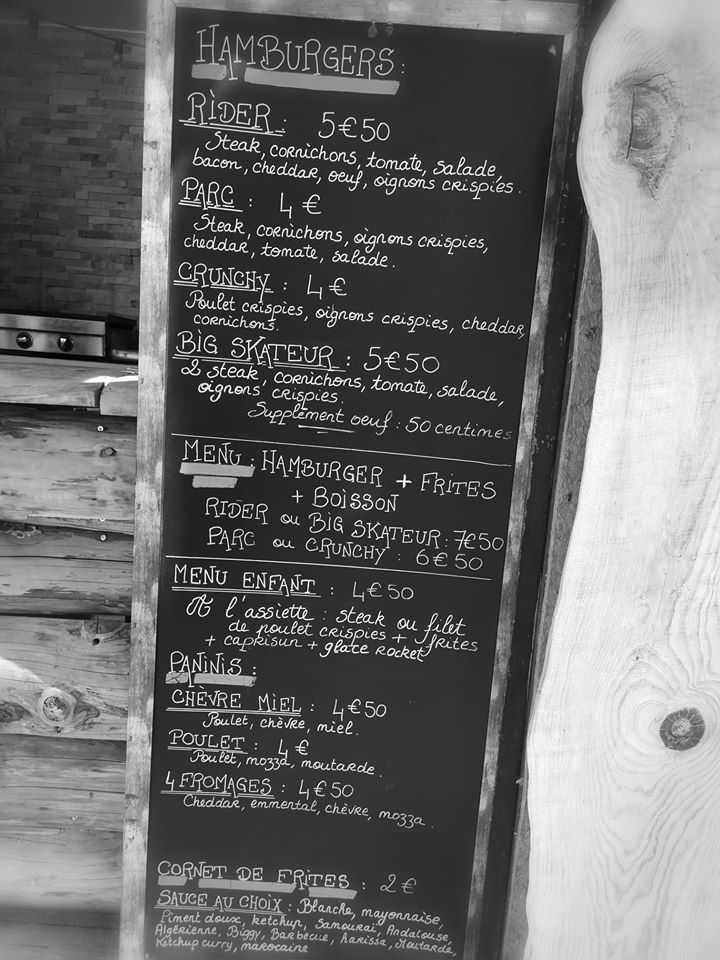 HAMBURGERS :
RIDER : 5€50
Steak, cornichons, tomate, salade,
bacon, cheddar, oeuf, oignons crispies.
PARC : 4 €
Steak, cornichons, oignons crispies,
cheddar, tomate, salade.
CRUNCHY : 4 €
Poulet crispies, oignons crispies, cheddar,
cornichons.
BIG SKATEUR : 5€50
2 steak, cornichons, tomate, salade,
oignons crispies.
Supplément oeuf : 50 centimes
MENU : HAMBURGER + FRITES
+ BOISSON
RIDER ou BIG SKATEUR : 7€50
PARC ou CRUNCHY : 6€50
MENU ENFANT : 4€50
A l'assiette : steak ou filet
de poulet crispies + frites
+ caprisun + glace rocket
PANINIS :
CHÈVRE MIEL : 4€50
Poulet, chèvre, miel.
POULET : 4 €
Poulet, mozza, moutarde.
4 FROMAGES : 4€50
Cheddar, emmental, chèvre, mozza.
CORNET DE FRITES : 2 €
SAUCE AU CHOIX : Blanche, mayonnaise,
Piment doux, ketchup, Samouraï, Andalouse,
Algérienne, Biggy, Barbecue, harissa, Moutarde,
Ketchup curry, marocaine